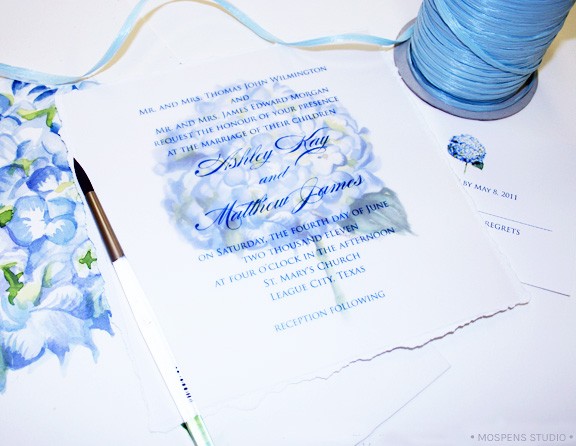 Mr. and Mrs. Thomas John Wilmington
and
Mr. and Mrs. James Edward Morgan
request the honour of your presence
at the marriage of their children
Ashley Kay
and
Matthew James
on Saturday, the fourth day of June
two thousand eleven
at four o'clock in the afternoon
St. Mary's Church
League City, Texas
reception following
by May 8, 2011
regrets
• MOSPENS STUDIO •